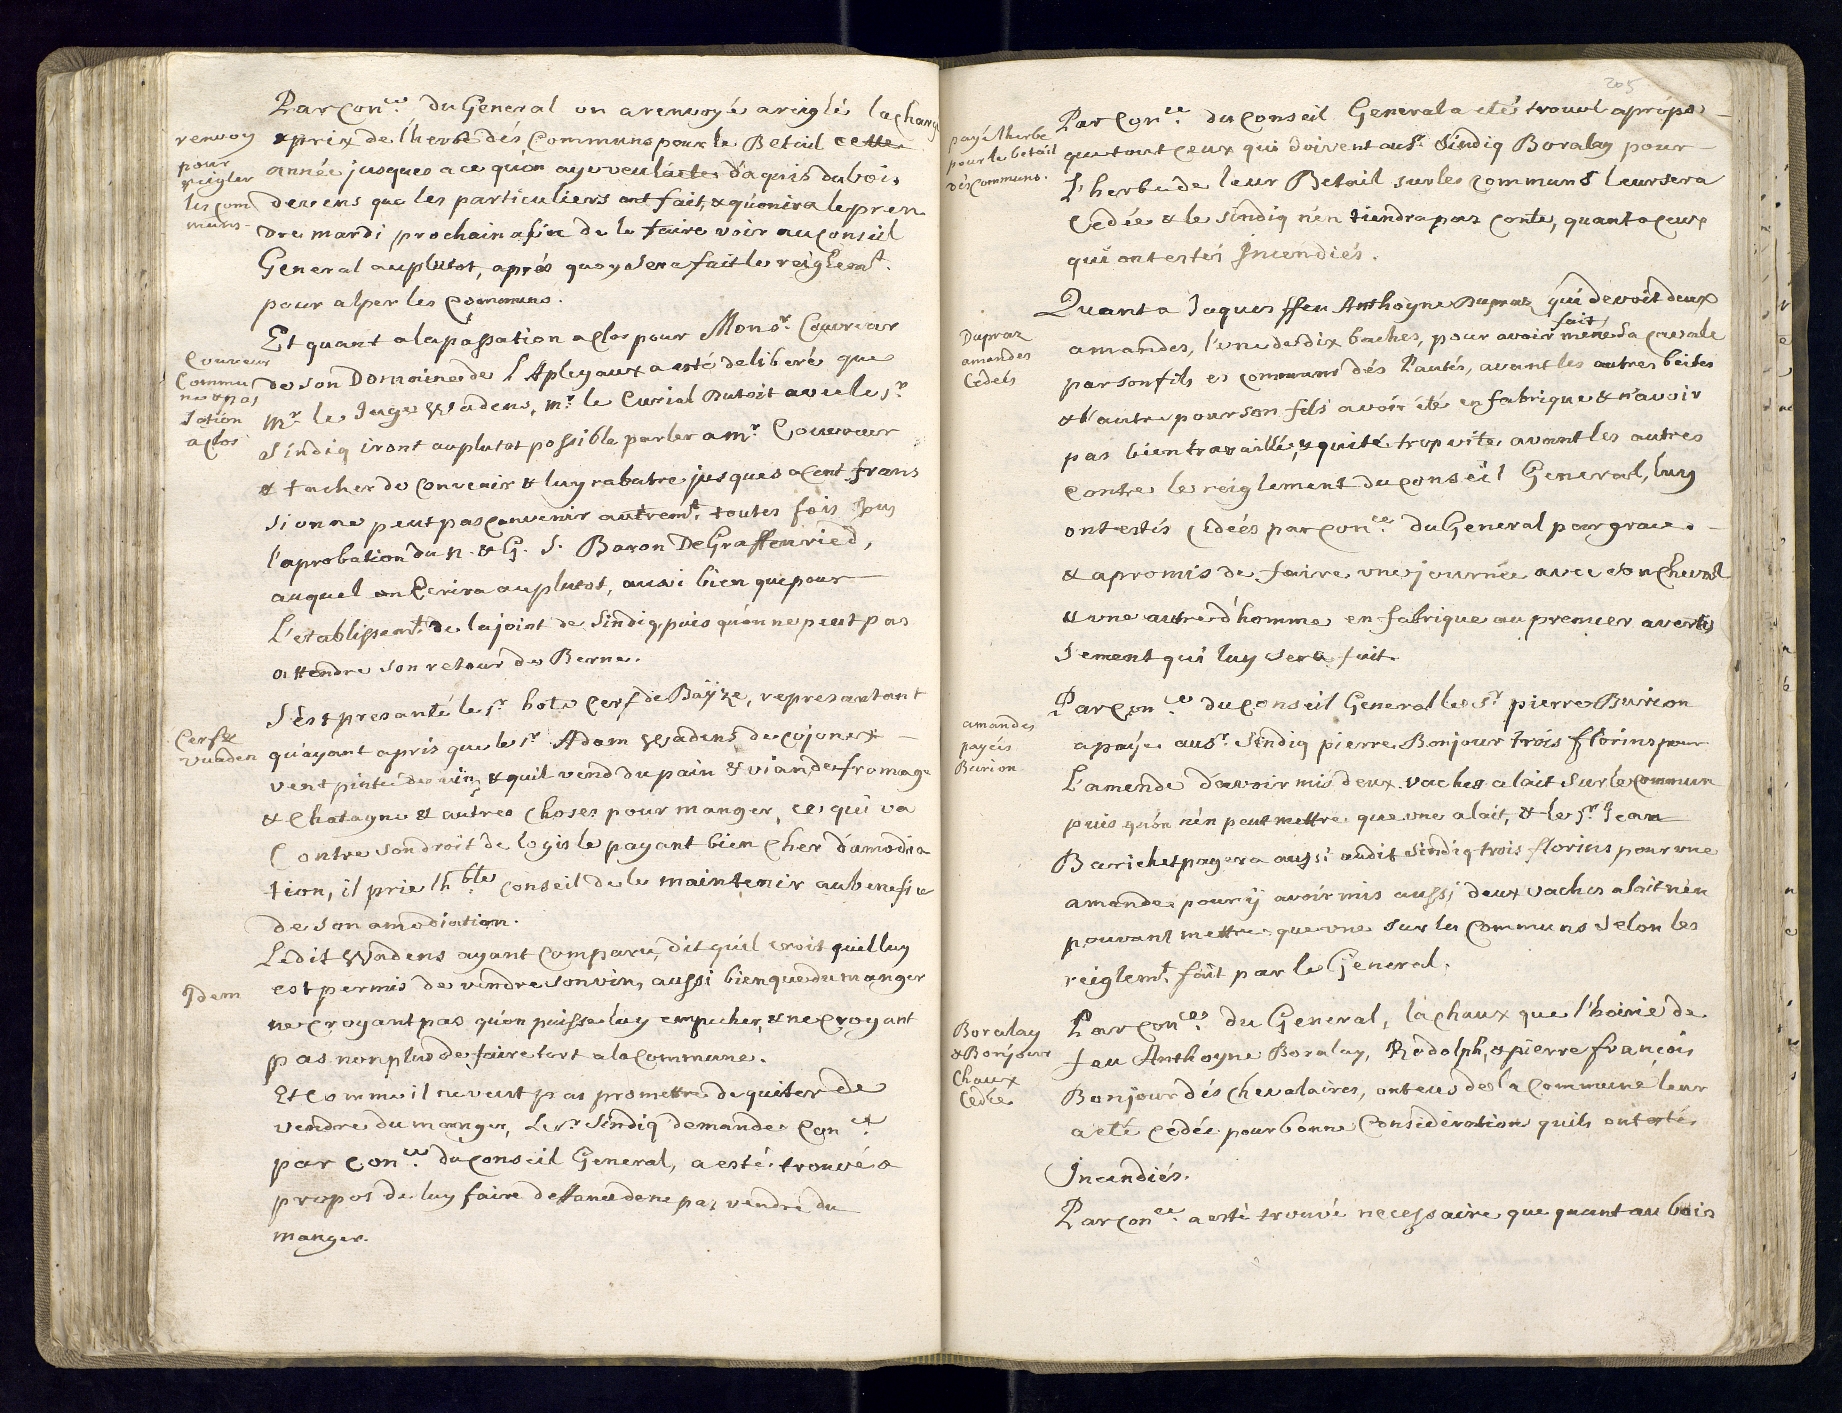 Par con.ce du General on a renvoyé a reiglé la charge
renvoy
pour
reigler
les com
muns
& prix de l'herbe dés Communs pour le Betail cette
année jusques a ce qu'on aye veu l'acte d'aquis du bois
devens que les particuliers ont fait, & qu'on ira le pren
dre mardi prochain afin de le faire voir au Conseil
General au plutot, aprés quoy sera fait le reiglemt.
pour alper les Communs.
Et quant a la passation a clos pour Monsr. Couvreur
Couvreur
Commu
ne & pas
sation
a clos
de son Domaine de l'Apleyaux a esté deliberé que
mr. le Juge Wadens, mr. le Curial Dutoit avec le sr.
Sindiq iront au plutot possible parler a mr. Couvreur
& tacher de convenir & luy rabatre jusques a cent frans
si on ne peut pas convenir autremt. toutes fois sous
l'aprobation du N. & G. S. Baron De Graffenried,
auquel on Ecrira au plutot, aussi bien que pour
L'etablissemt. de lajoint de Sindiq, puis qu'on ne peut pas
attendre son retour de Berne.
S'est presanté le sr. hote Cerf de Bayze, represantant
Cerf &
Vuaden
qu'ayant apris que le sr. Adam Wadens de cojonex
vent pinte de vin, & quil vend du pain & viande, fromage
& Chatagne & autres choses pour manger, ce qui va
Contre son droit de logis le payant bien cher d'amodia
tion, il prie lh.ble conseil de le maintenir au benefice
de son amodiation.
Ledit Wadens ayant comparu, dit qu'il croit quil luy
Idem
est permis de vendre son vin, aussi bien que du manger
ne croyant pas qu'on puisse luy empecher, & ne croyant
pas non plus de faire tort a la commune.
Et comme il ne veut pas promettre de quiter de
vendre du manger, Le sr. Sindiq demande con.ce
par con.ce du Conseil General, a esté trouvé a
propos de luy faire deffance de ne pas vendre du
manger.
205
Par Con.ce du Conseil General a eté trouvé apropos
payé l'herbe
pour le betail
dés communs.
que tout ceux qui doivent au sr. Sindiq Boralay pour
l'herbe de leur Betail sur les communs leur sera
Cedée & le sindiq n'en tiendra pas conte, quant a ceux
qui ont estés Incendiés.
Quant a Jaques ffeu Anthoyne Dupraz qui devoit deux
Dupraz
amandes
Cedeés
amandes, l'une de dix baches, pour avoir fait mené sa cavale
par son fils es communs dés Pautés, avant les autres beites
& l'autre pour son fils avoir été en fabrique & n'avoir
pas bien travaillé, & quité trop vite avant les autres
contre le reiglement du conseil General, luy
ont estés cedeés par con.ce du General par grace.
& a promis de faire une journée avec son cheval
& une autre d'homme en fabrique au premier avertis
sement qui luy sera fait.
Par Con.ce du Conseil General le sr. pierre Burion
amandes
payeés
Burion
a payé au sr. Sindiq pierre Bonjour trois florins pour
L'amende d'avoir mis deux vaches a lait sur le commun
puis qu'on n'en peut mettre que une a lait, & le sr. Jean
Barichet payera aussi audit sindiq trois florins pour une
amande pour ÿ avoir mis aussi deux vaches a lait n'en
pouvant mettre que une sur les communs selon les
reiglemt. fait par le General.
Par con.ce du General, la chaux que l'hoirie de
Boralay
& Bonjour
Chaux
Cedée
feu Anthoyne Boralay, Rodolph, & pierre françois
Bonjour dés chevalaires, ont eus de la commune leur
a eté cedée pour bonne Consideration quils ont estés
Incendiés.
Par con.ce a esté trouvé necessaire que quant au bois